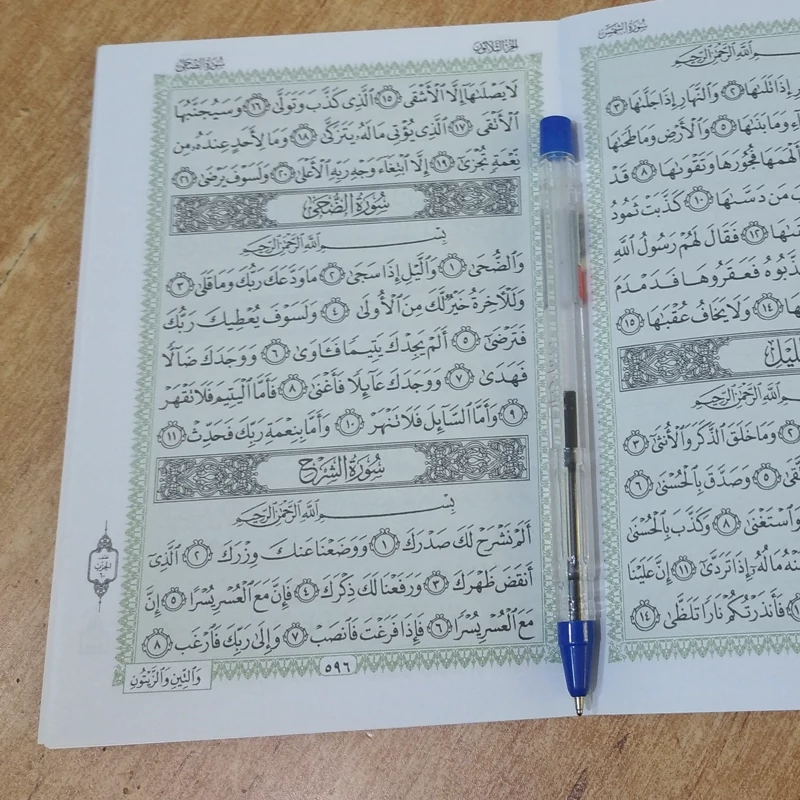 سُورَةُ الشَّمْسِ
بِسْمِ ٱللَّهِ ٱلرَّحْمَٰنِ ٱلرَّحِيمِ
إِذَا تَلَىٰهَا ٢ وَٱلنَّهَارِ إِذَا جَلَّىٰهَا ٣
وَمَا بَنَىٰهَا ٥ وَٱلْأَرْضِ وَمَا طَحَىٰهَا
فَأَلْهَمَهَا فُجُورَهَا وَتَقْوَىٰهَا ٨ قَدْ
مَن دَسَّىٰهَا ١٠ كَذَّبَتْ ثَمُودُ
١٢ فَقَالَ لَهُمْ رَسُولُ ٱللَّهِ
فَعَقَرُوهَا فَدَمْدَمَ
١٤ وَلَا يَخَافُ عُقْبَٰهَا ١٥
بِسْمِ ٱللَّهِ ٱلرَّحْمَٰنِ ٱلرَّحِيمِ
٢ وَمَا خَلَقَ ٱلذَّكَرَ وَٱلْأُنثَىٰ ٣
٥ وَصَدَّقَ بِٱلْحُسْنَىٰ ٦
وَٱسْتَغْنَىٰ ٨ وَكَذَّبَ بِٱلْحُسْنَىٰ
مَالُهُۥٓ إِذَا تَرَدَّىٰٓ ١١ إِنَّ عَلَيْنَا
فَأَنذَرْتُكُمْ نَارًا تَلَظَّىٰ ١٤
الجُزْءُ الثَّلَاثُونَ
سُورَةُ الضُّحَىٰ
لَا يَصْلَىٰهَآ إِلَّا ٱلْأَشْقَى ١٥ ٱلَّذِى كَذَّبَ وَتَوَلَّىٰ ١٦ وَسَيُجَنَّبُهَا
ٱلْأَتْقَى ١٧ ٱلَّذِى يُؤْتِى مَالَهُۥ يَتَزَكَّىٰ ١٨ وَمَا لِأَحَدٍ عِندَهُۥ مِن
نِّعْمَةٍ تُجْزَىٰٓ ١٩ إِلَّا ٱبْتِغَآءَ وَجْهِ رَبِّهِ ٱلْأَعْلَىٰ ٢٠ وَلَسَوْفَ يَرْضَىٰ ٢١
سُورَةُ الضُّحَىٰ
بِسْمِ ٱللَّهِ ٱلرَّحْمَٰنِ ٱلرَّحِيمِ
وَٱلضُّحَىٰ ١ وَٱلَّيْلِ إِذَا سَجَىٰ ٢ مَا وَدَّعَكَ رَبُّكَ وَمَا قَلَىٰ ٣
وَلَلْـَٔاخِرَةُ خَيْرٌ لَّكَ مِنَ ٱلْأُولَىٰ ٤ وَلَسَوْفَ يُعْطِيكَ رَبُّكَ
فَتَرْضَىٰٓ ٥ أَلَمْ يَجِدْكَ يَتِيمًا فَـَٔاوَىٰ ٦ وَوَجَدَكَ ضَآلًّا
فَهَدَىٰ ٧ وَوَجَدَكَ عَآئِلًا فَأَغْنَىٰ ٨ فَأَمَّا ٱلْيَتِيمَ فَلَا تَقْهَرْ
٩ وَأَمَّا ٱلسَّآئِلَ فَلَا تَنْهَرْ ١٠ وَأَمَّا بِنِعْمَةِ رَبِّكَ فَحَدِّثْ ١١
سُورَةُ الشَّرْحِ
بِسْمِ ٱللَّهِ ٱلرَّحْمَٰنِ ٱلرَّحِيمِ
أَلَمْ نَشْرَحْ لَكَ صَدْرَكَ ١ وَوَضَعْنَا عَنكَ وِزْرَكَ ٢ ٱلَّذِىٓ
أَنقَضَ ظَهْرَكَ ٣ وَرَفَعْنَا لَكَ ذِكْرَكَ ٤ فَإِنَّ مَعَ ٱلْعُسْرِ يُسْرًا ٥ إِنَّ
مَعَ ٱلْعُسْرِ يُسْرًا ٦ فَإِذَا فَرَغْتَ فَٱنصَبْ ٧ وَإِلَىٰ رَبِّكَ فَٱرْغَب ٨
٥٩٦
وَٱلتِّينِ وَٱلزَّيْتُونِ